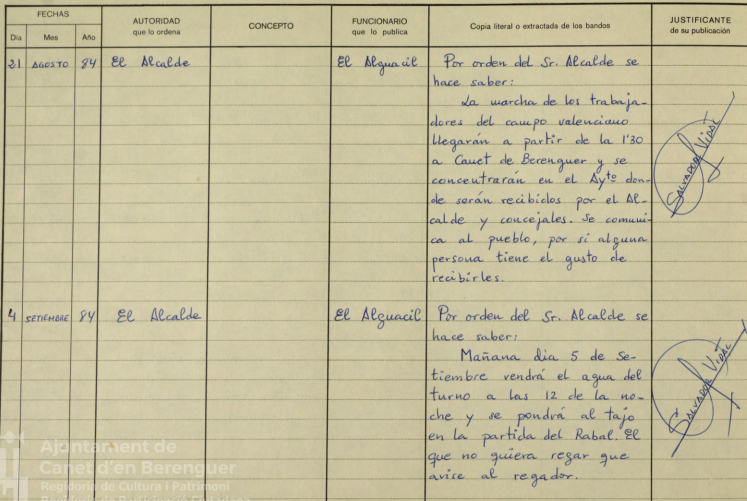 FECHAS
Día Mes Año
AUTORIDAD
que lo ordena
CONCEPTO
FUNCIONARIO
que lo publica
Copia literal o extractada de los bandos
JUSTIFICANTE
de su publicación
21 AGOSTO 84 El Alcalde El Alguacil
Por orden del Sr. Alcalde se
hace saber:
La marcha de los trabaja-
dores del campo valenciano
llegarán a partir de la 1'30
a Canet de Berenguer y se
concentrarán en el Ayto don-
de serán recibidos por el Al-
calde y concejales. Se comuni-
ca al pueblo, por si alguna
persona tiene el gusto de
recibirles.
SALVADOR VIDAL
4 SETIEMBRE 84 El Alcalde El Alguacil
Por orden del Sr. Alcalde se
hace saber:
Mañana dia 5 de Se-
tiembre vendrá el agua del
turno a las 12 de la no-
che y se pondrá al tajo
en la partida del Rabal. El
que no quiera regar que
avise al regador.
SALVADOR VIDAL
Ajuntament de
Canet d'en Berenguer
Regidoria de Cultura i Patrimoni